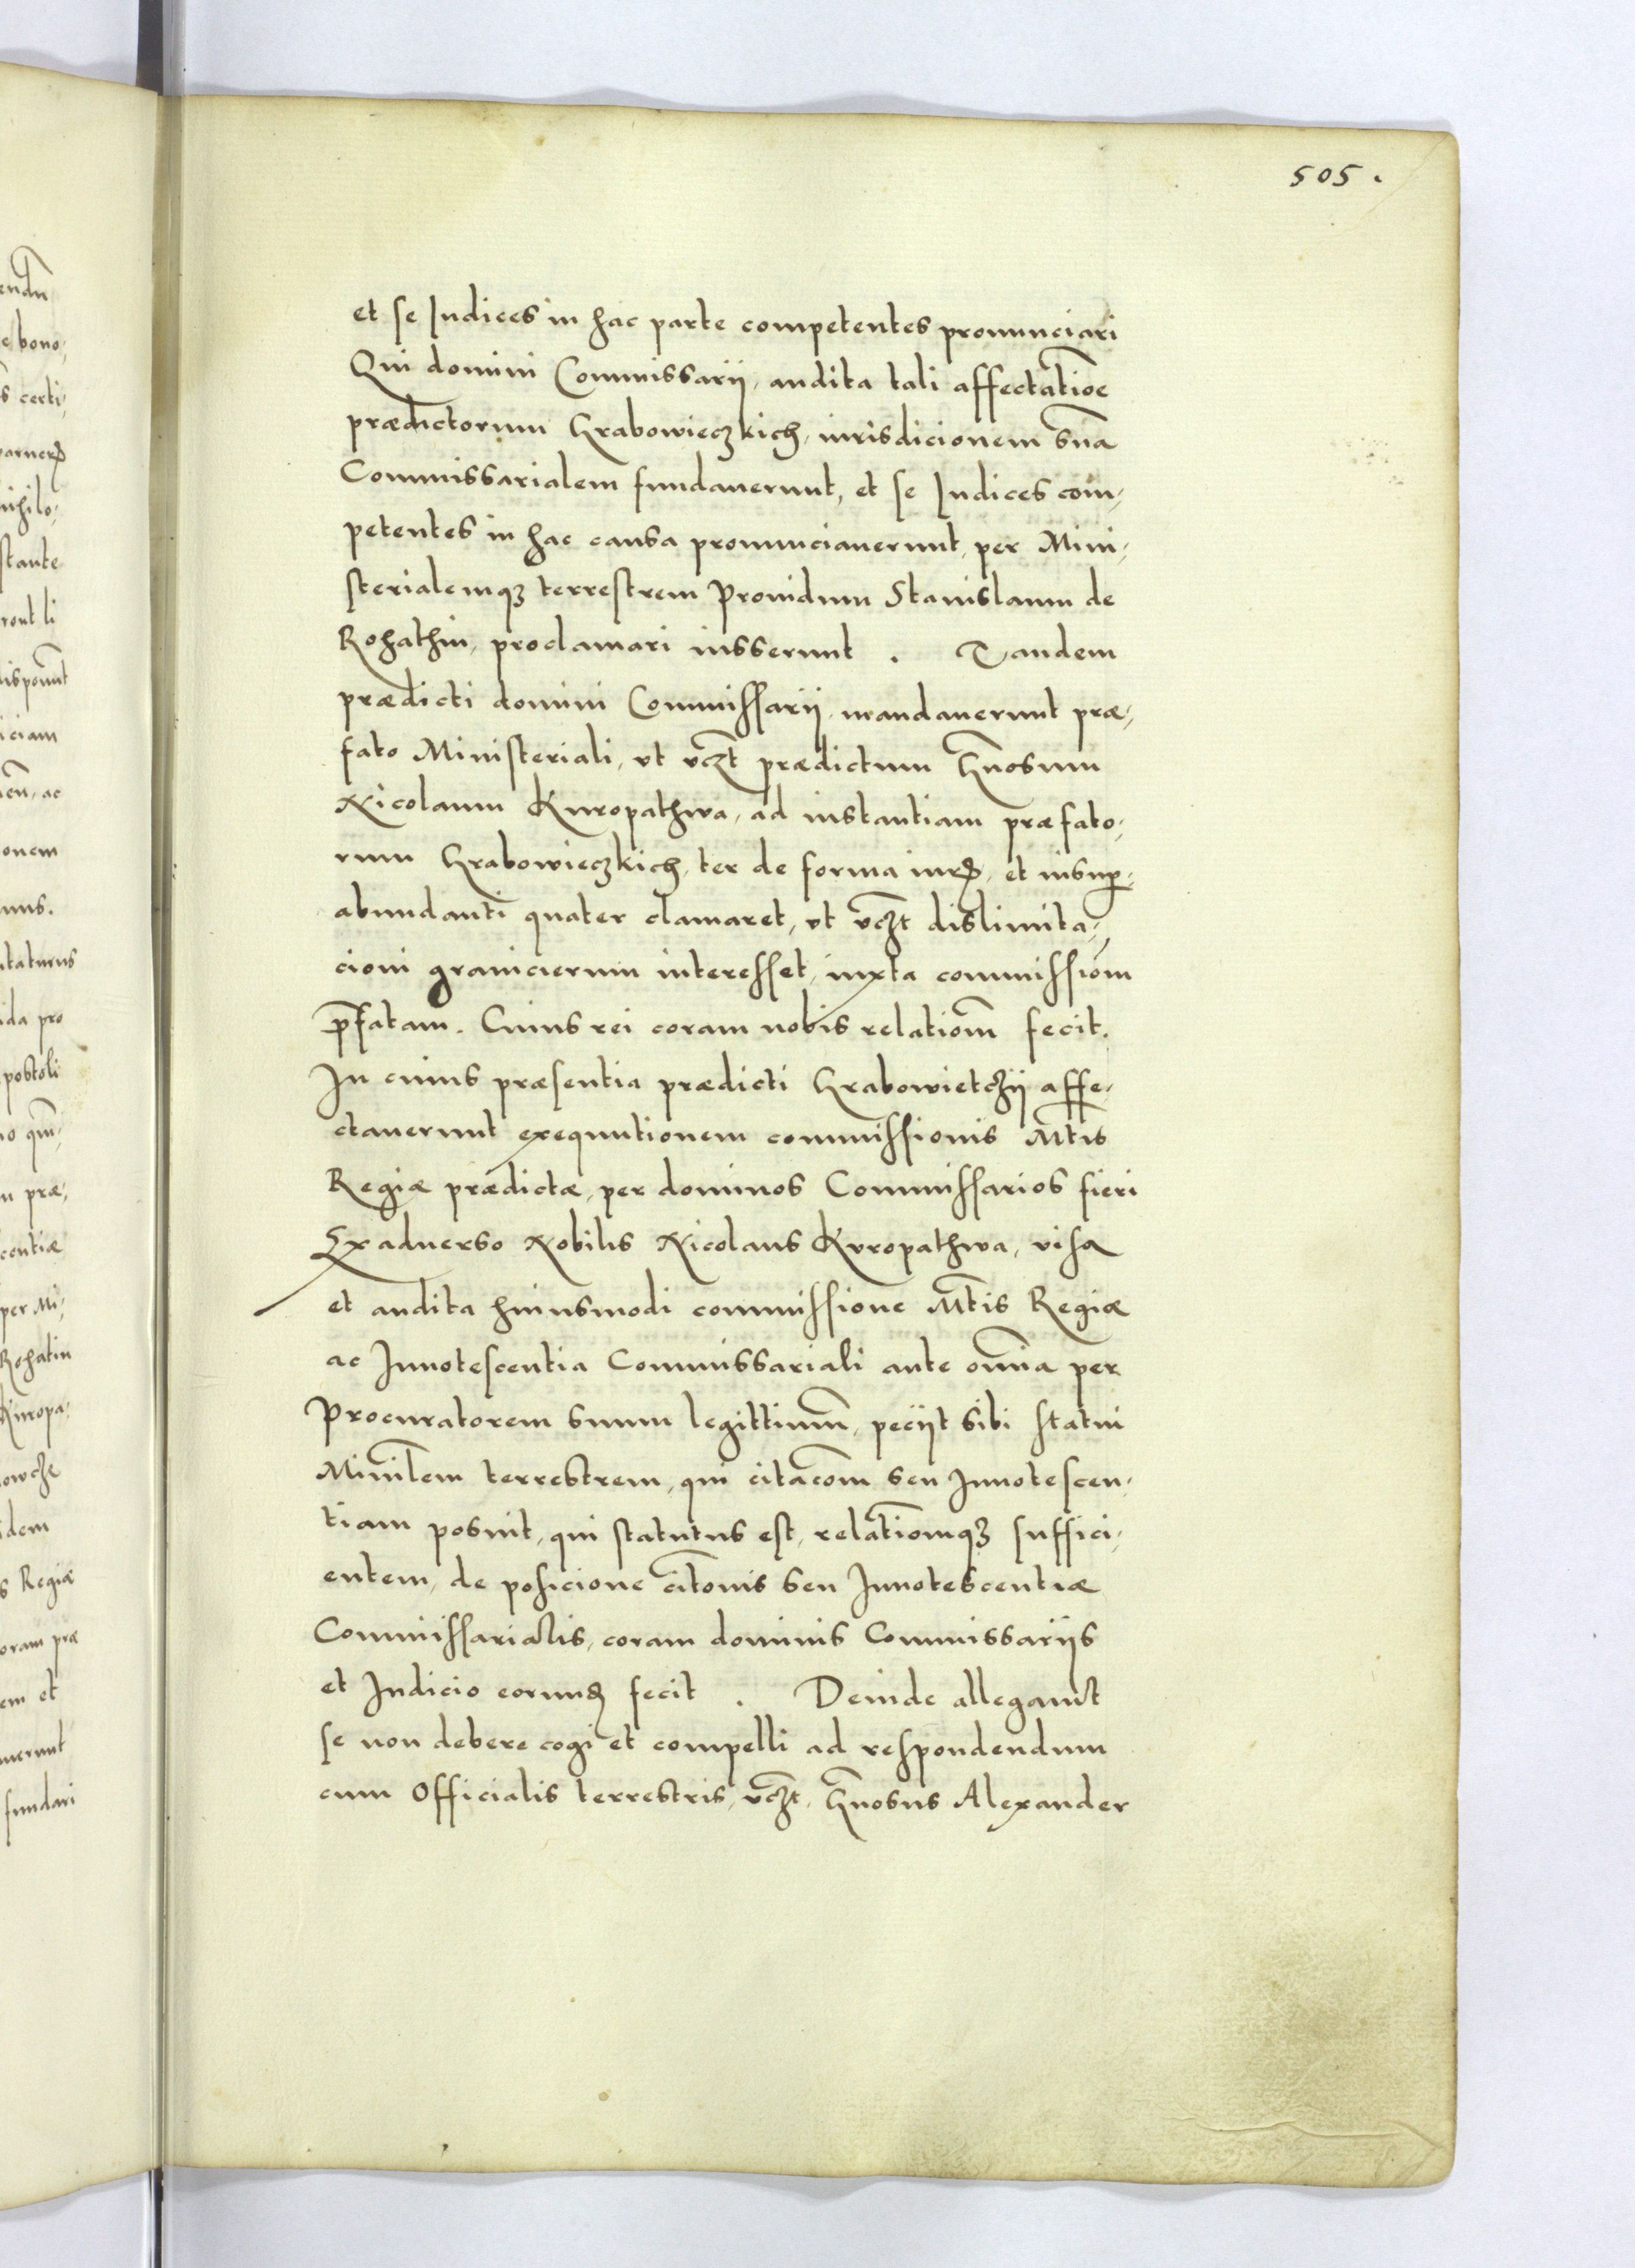 505.
et se Iudices in hac parte competentes pronunciari
Qui domini Commissarii, audita tali affectatiõe
prædictorum Hrabowieczkich, iurisdicionem suã
Commissarialem fundauerunt, et se Iudices com-
petentes in hac causa pronunciauerunt, per Mini-
sterialemqꝫ terrestrem Prouidum Stanislaum de
Rohathin, proclamari iusserunt . Tandem
prædicti domini Commissarii, mandauerunt præ-
fato Ministeriali, vt vczt prædictum Gñosum
Nicolaum Kuropathwa, ad instantiam præfato-
rum Hrabowieczkich, ter de forma iurꝭ, et insuꝑ-
abundanti quater clamaret, vt vczt dislimita-
cioni granicierum interesset, iuxta commissiõm
p̃fatam. Cuius rei coram nobis relatiõm fecit.
In cuius præsentia prædicti Hrabowietczii affe-
ctauerunt exequutionem commissionis Mt̃is
Regiæ prædictæ, per dominos Commissarios fieri
Ex aduerso Nobilis Nicolaus Kvropathwa, visa
et audita huiusmodi commissione Mt̃is Regiæ
ac Innotescentia Commissariali ante om̃ia per
Procuratorem suum legittimũ, peciit sibi statui
Minil̃em terrestrem, qui citacõm seu Innotescen-
tiam posuit, qui statutus est, relatiõmqꝫ suffici-
entem, de posicione cit̃onis seu Innotescentiæ
Commissarialis, coram dominis Commissariis
et Iudicio eorundꝫ fecit . Deinde allegauit
se non debere cogi et compelli ad respondendum
cum Officialis terrestris, vczt, Gñosus Alexander